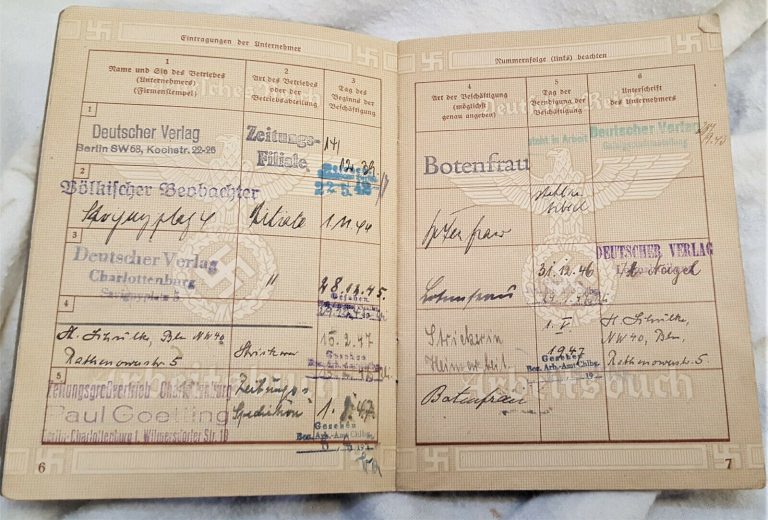 Eintragungen der Unternehmer
1
Name und Sitz des Betriebes
(Unternehmers)
(Firmenstempel)
2
Art des Betriebes
oder der
Betriebsabteilung
3
Tag des
Beginns der
Beschäftigung
1
Deutscher Verlag
Berlin SW 68, Kochstr. 22-26
Zeitungs-
Filiale
12. 39
22. 5. 42
2
Völkischer Beobachter
Savignyplatz 4
1. 11. 44
3
Deutscher Verlag
Charlottenburg
Savignyplatz 5
"
28.12.45.
Gesehen
4
H. Schulke, Bln NW 40
Rathenowerstr. 5
Strickerei
15. 2. 47
Gesehen
5
Zeitungsgroßvertrieb Charlottenburg
Paul Goetting
Berlin-Charlottenburg 1, Wilmersdorfer Str. 18
Zeitungs-
Spedition
1. 8. 47.
Gesehen
Bez. Arb.-Amt Chlbg.
6
Nummernfolge (links) beachten
4
Art der Beschäftigung
(möglichst
genau angeben)
5
Tag der
Beendigung der
Beschäftigung
6
Unterschrift
des Unternehmers
Botenfrau
steht in Arbeit
Deutscher Verlag
Botenfrau
31.12.46
DEUTSCHER VERLAG
Botenfrau
Strickerin
Heimarbeit
1. V.
1947
Gesehen
Bez. Arb.-Amt Chlbg.
H. Schulke,
NW 40, Bln.,
Rathenowerstr. 5
Botenfrau
Arbeitsbuch
7